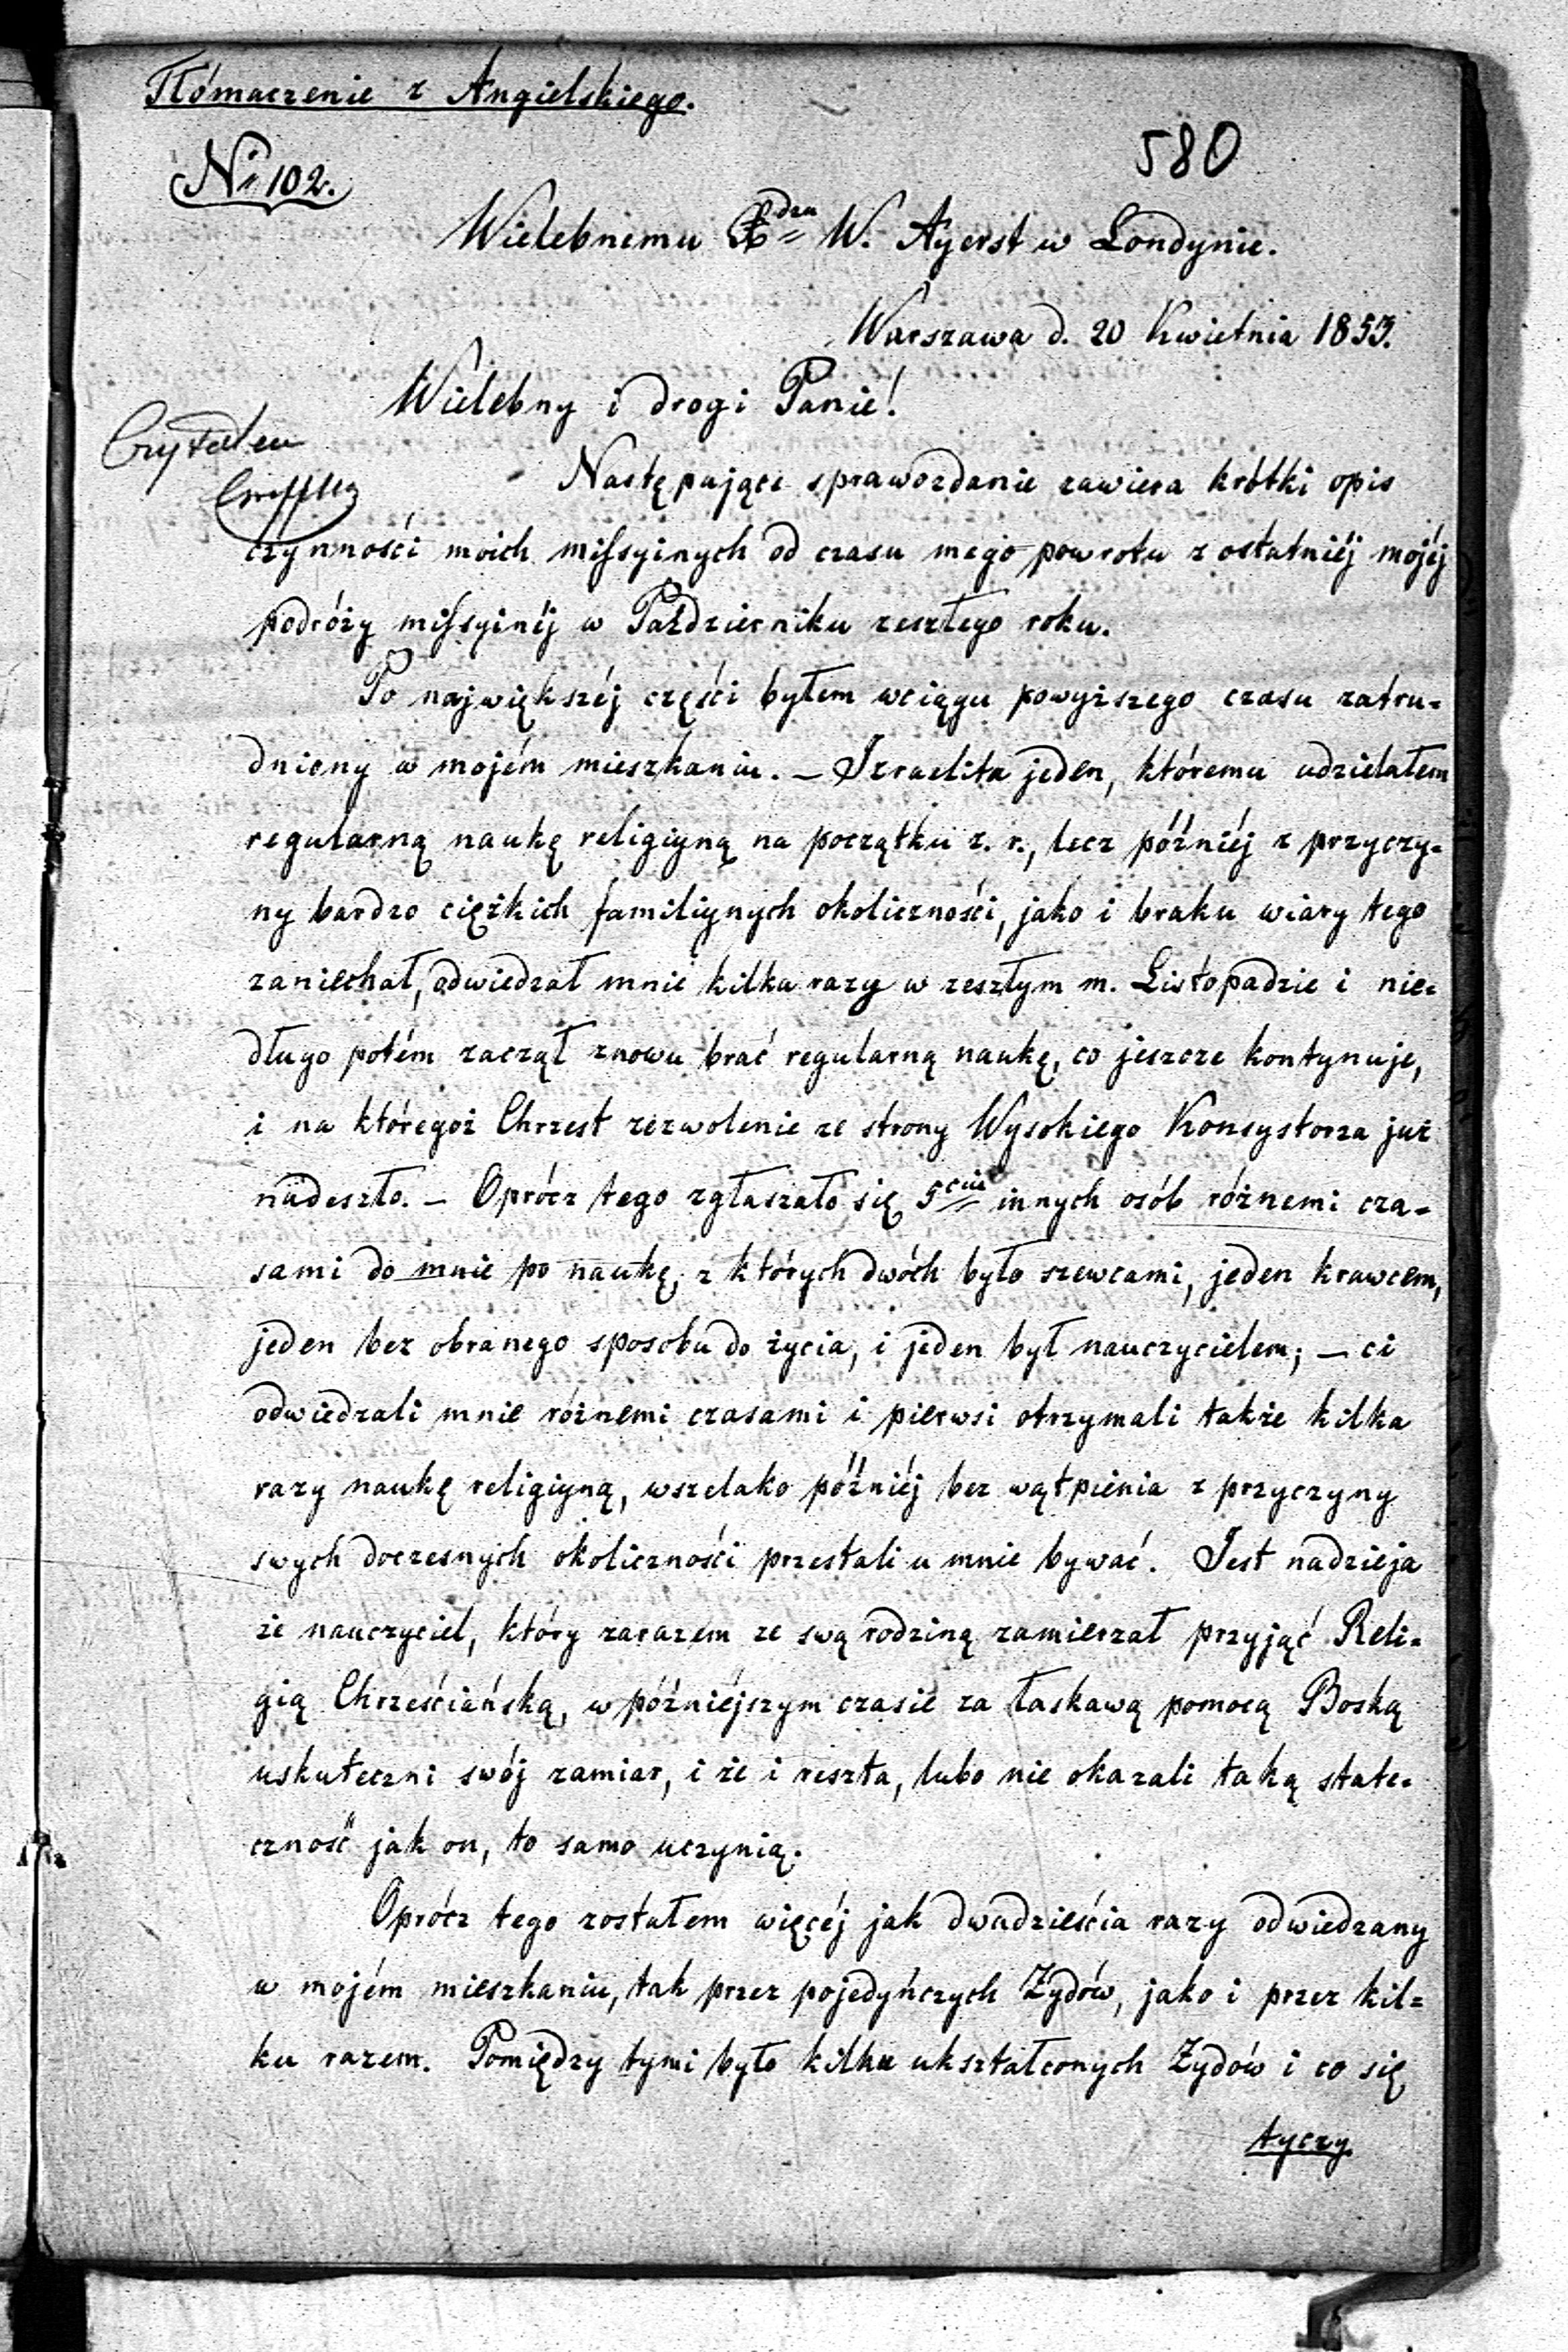 Tłómaczenie z Angielskiego.
580
№ 102.
Wielebnemu Xdzu W. Ayerst w Londynie.
Warszawa d. 20 Kwietnia 1853.
Wielebny i drogi Panie!
Czytałem
Następujące sprawozdanie zawiera krótki opis
czynności moich missyinych od czasu mego powrotu z ostatniéj mojéj
podróży missyinéj w Październiku zeszłego roku.
Po największéj części byłem wciągu powyższego czasu zatru-
dniony w mojém mieszkaniu. – Izraelita jeden, któremu udzielałem
regularną naukę religiyną na początku z. r., lecz późniéj z przyczy-
ny bardzo ciężkich familiynych okoliczności, jako i braku wiary tego
zaniechał, odwiedzał mnie kilka razy w zeszłym m. Listopadzie i nie-
długo potém zaczął znowu brać regularną naukę, co jeszcze kontynuje,
i na któregoż Chrzest zezwolenie ze strony Wysokiego Konsystorza już
nadeszło. – Oprócz tego zgłaszało się 5ciu innych osób różnemi cza-
sami do mnie po naukę, z których dwóch było szewcami, jeden krawcem,
jeden bez obranego sposobu do życia, i jeden był nauczycielem; – ci
odwiedzali mnie różnemi czasami i pierwsi otrzymali także kilka
razy naukę religiyną, wszelako późniéj bez wątpienia z przyczyny
swych doczesnych okoliczności przestali u mnie bywać. Jest nadzieja
że nauczyciel, który zarazem ze swą rodziną zamierzał przyjąć Reli-
gią Chrześciańską, w późniéjszym czasie za łaskawą pomocą Boską
uskuteczni swój zamiar, i że i reszta, lubo nie okazali taką state-
czność jak on, to samo uczynią.
Oprócz tego zostałem więcéj jak dwadzieścia razy odwiedzany
w mojém mieszkaniu, tak przez pojedyńczych Żydów, jako i przez kil-
ku razem. Pomiędzy tymi było kilku ukształconych Żydów i co się
tyczy